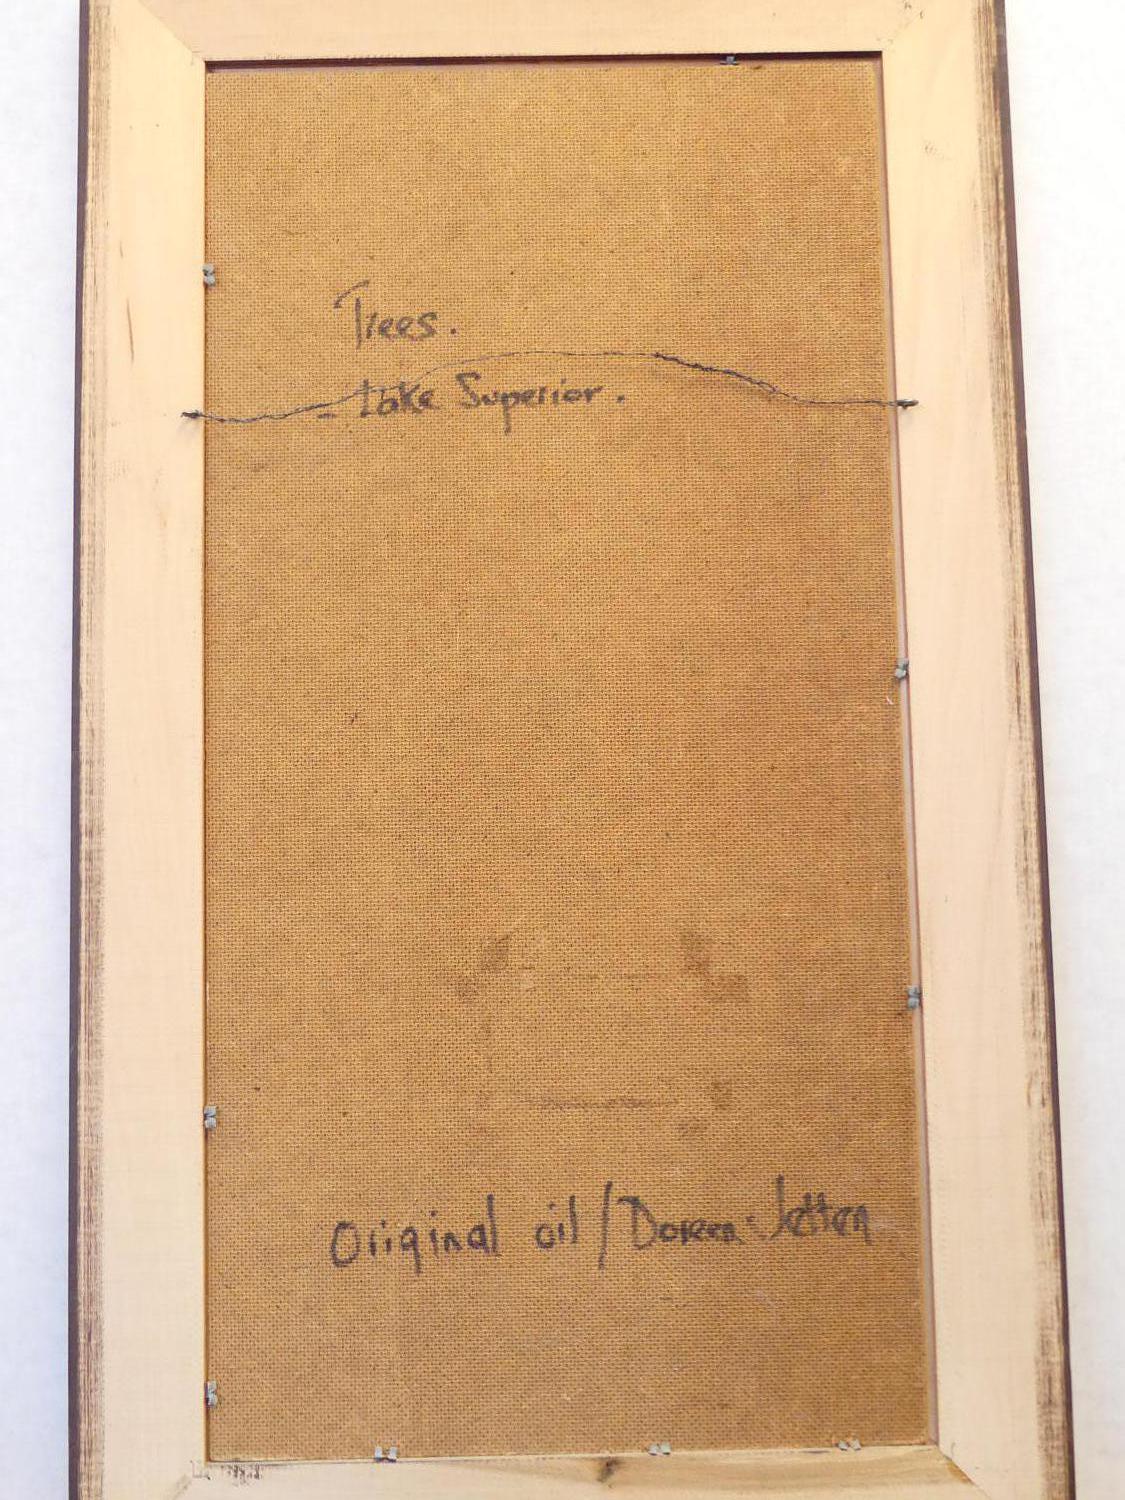 Trees.
- Lake Superior.
Original oil / Doreen Jetten